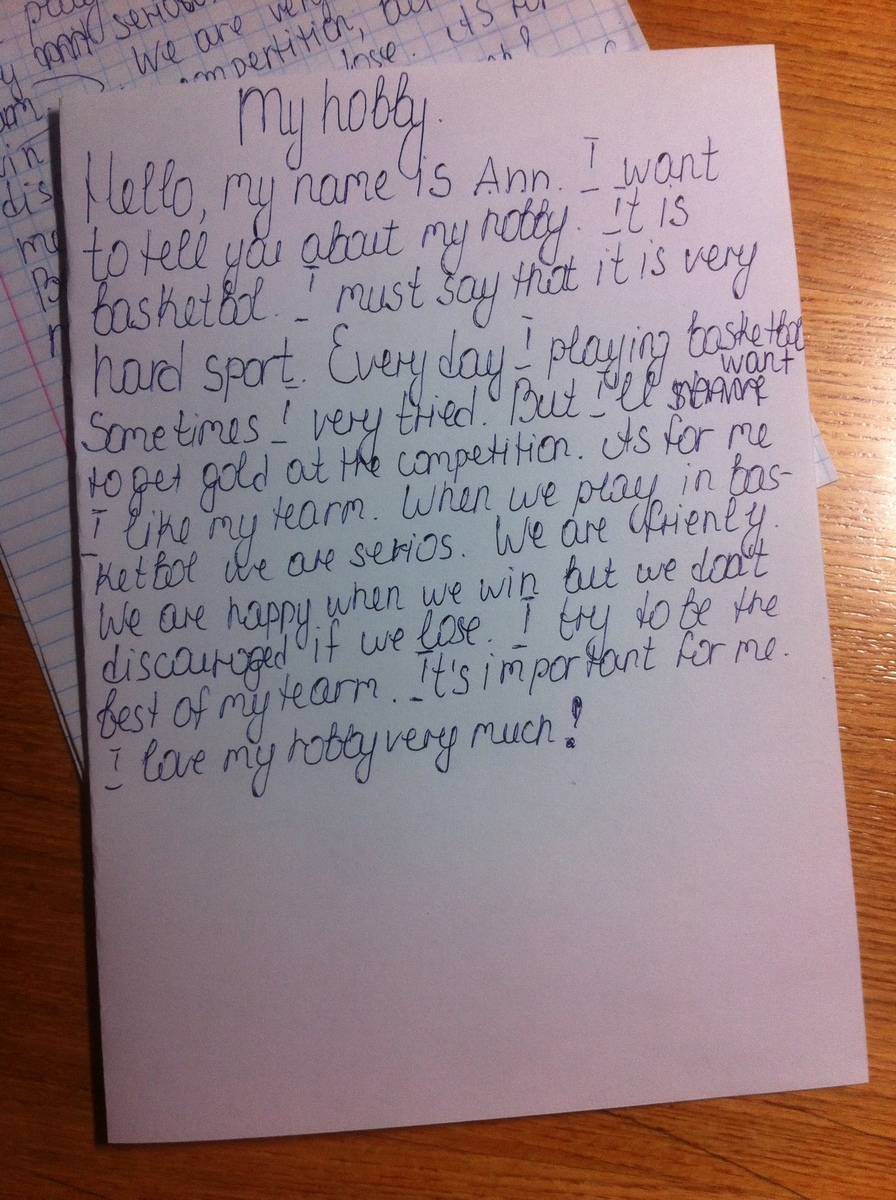 play
serios
y
We are very
competition, but
lose. As for
in
dis
me
B
My hobby.
Hello, my name is Ann. I want
to tell you about my hobby. It is
basketbol. I must say that it is very
hard sport. Every day I playing basketbol
want
Sometimes I very tried. But I'll
to get gold at the competition. As for me
I like my tearm. When we play in bas-
ketbol we are serios. We are friently.
We are happy when we win but we don't
discouroged if we lose. I try to be the
best of my tearm. It's important for me.
I love my hobby very much!